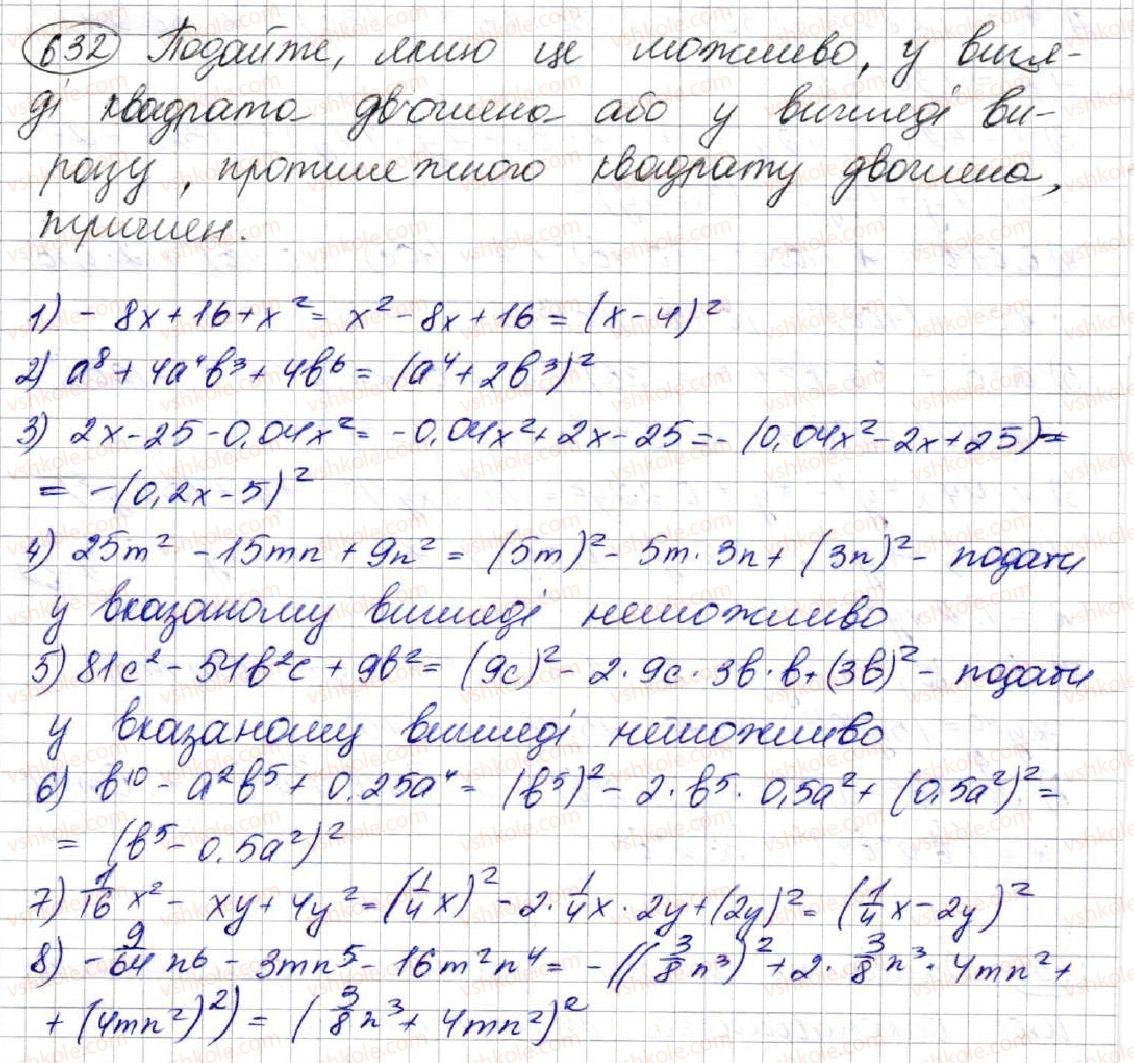 632 Подайте, якщо це можливо, у вигля-
ді квадрата двочлена або у вигляді ви-
разу, протилежного квадрату двочлена,
тричлен.
1) - 8x + 16 + x² = x² - 8x + 16 = (x - 4)²
2) a⁸ + 4a⁴b³ + 4b⁶ = (a⁴ + 2b³)²
3) 2x - 25 - 0,04x² = -0,04x² + 2x - 25 = - (0,04x² - 2x + 25) =
= -(0,2x - 5)²
4) 25m² - 15mn + 9n² = (5m)² - 5m · 3n + (3n)² - подати
у вказаному вигляді неможливо
5) 81c² - 54b²c + 9b² = (9c)² - 2 · 9c · 3b · b + (3b)² - подати
у вказаному вигляді неможливо
6) b¹⁰ - a²b⁵ + 0,25a⁴ = (b⁵)² - 2 · b⁵ · 0,5a² + (0,5a²)² =
= (b⁵ - 0,5a²)²
7) 1/16 x² - xy + 4y² = (1/4 x)² - 2 · 1/4 x · 2y + (2y)² = (1/4 x - 2y)²
8) - 9/64 n⁶ - 3mn⁵ - 16m²n⁴ = - ((3/8 n³)² + 2 · 3/8 n³ · 4mn² +
+ (4mn²)²) = (3/8 n³ + 4mn²)²